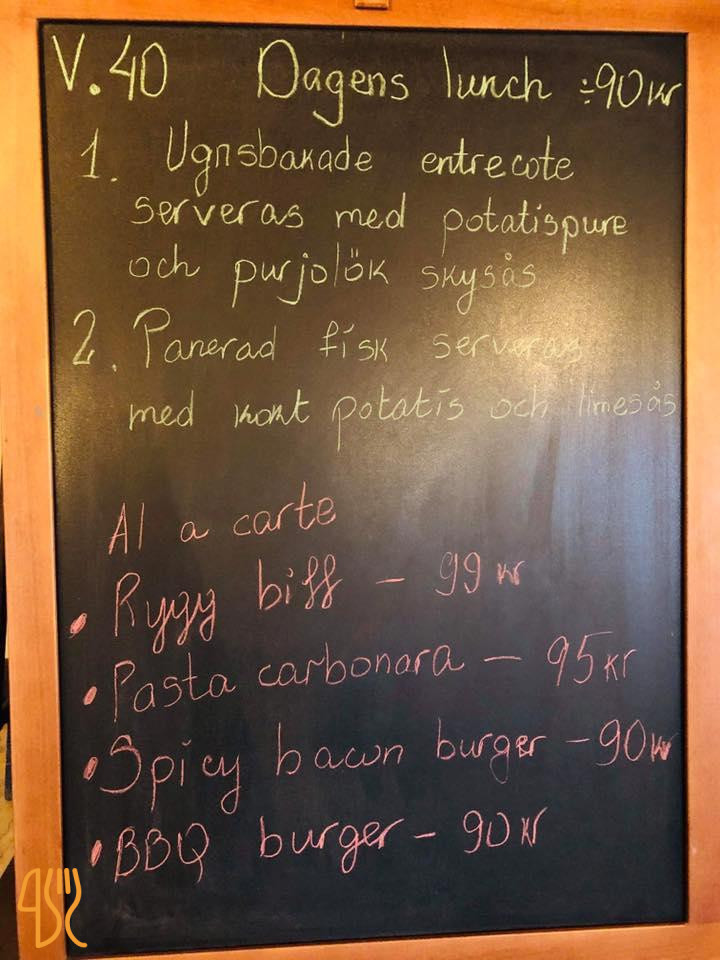 V.40 Dagens lunch ÷90kr
1. Ugnsbakade entrecote
serveras med potatispure
och purjolök skysås
2. Panerad fisk serveras
med kokt potatis och limesås
Al a carte
• Rygg biff – 99 kr
• Pasta carbonara – 95kr
• Spicy bacon burger – 90kr
• BBQ burger – 90kr